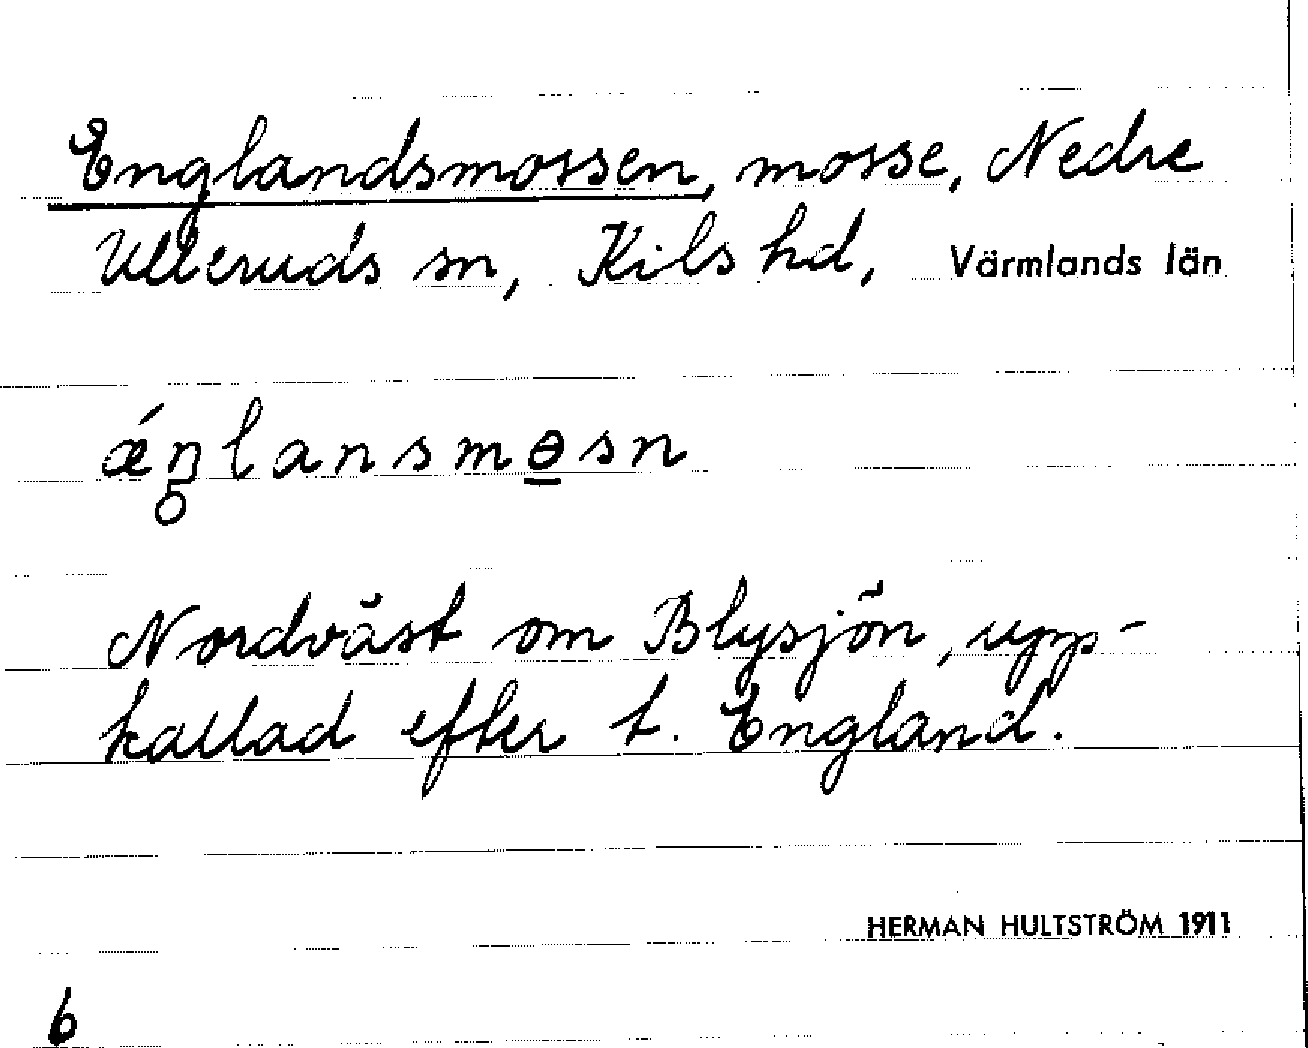 Englandsmossen, mosse, Nedre
Ulleruds sn, Kils hd, Värmlands län
ǽn̥lansmɵ̱sn
Nordväst om Blysjön, upp-
kallad efter t. England.
HERMAN HULTSTRÖM 1911
6